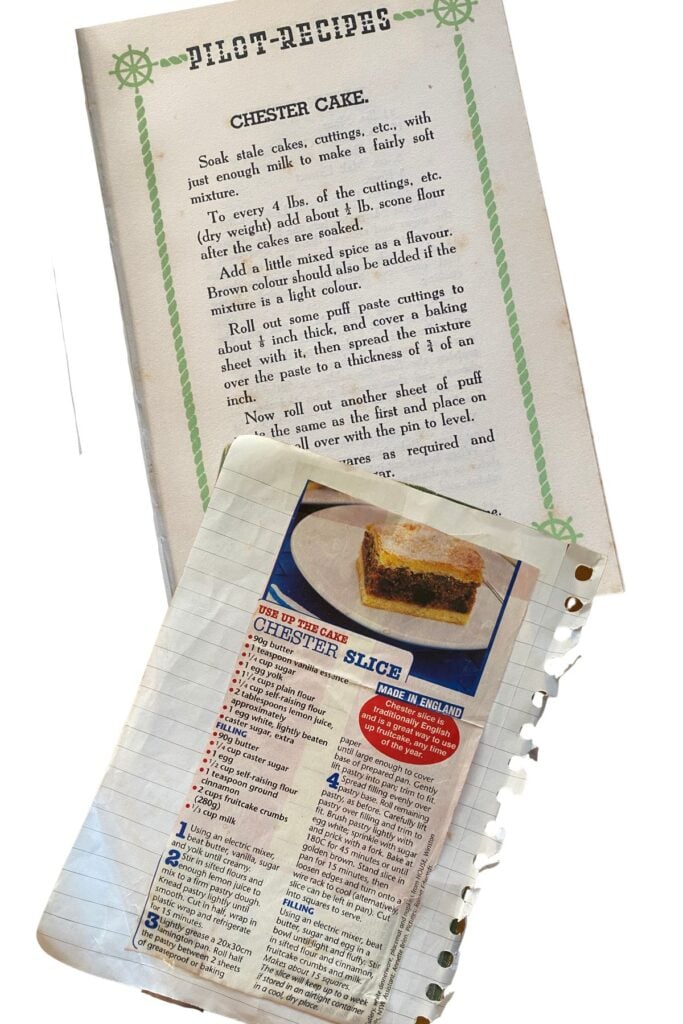 PILOT-RECIPES
CHESTER CAKE.
Soak stale cakes, cuttings, etc., with
just enough milk to make a fairly soft
mixture.
To every 4 lbs. of the cuttings, etc.
(dry weight) add about ½ lb. scone flour
after the cakes are soaked.
Add a little mixed spice as a flavour.
Brown colour should also be added if the
mixture is a light colour.
Roll out some puff paste cuttings to
about ⅛ inch thick, and cover a baking
sheet with it, then spread the mixture
over the paste to a thickness of ¾ of an
inch.
Now roll out another sheet of puff
the same as the first and place on
roll over with the pin to level.
as required and
USE UP THE CAKE
CHESTER SLICE
• 90g butter
• 1 teaspoon vanilla essence
• ¼ cup sugar
• 1 egg yolk
• 1¼ cups plain flour
• ¼ cup self-raising flour
• 2 tablespoons lemon juice,
approximately
• 1 egg white, lightly beaten
• caster sugar, extra
FILLING
• 90g butter
• ¼ cup caster sugar
• 1 egg
• ½ cup self-raising flour
• 1 teaspoon ground
cinnamon
• 2 cups fruitcake crumbs
(280g)
• ⅓ cup milk
1 Using an electric mixer,
beat butter, vanilla, sugar
and yolk until creamy.
2 Stir in sifted flours and
enough lemon juice to
mix to a firm pastry dough.
Knead pastry lightly until
smooth. Cut in half, wrap in
plastic wrap and refrigerate
for 15 minutes.
3 Lightly grease a 20x30cm
lamington pan. Roll half
the pastry between 2 sheets
of greaseproof or baking
MADE IN ENGLAND
Chester slice is
traditionally English
and is a great way to use
up fruitcake, any time
of the year.
paper
until large enough to cover
base of prepared pan. Gently
lift pastry into pan; trim to fit.
4 Spread filling evenly over
pastry base. Roll remaining
pastry, as before. Carefully lift
pastry over filling and trim to
fit. Brush pastry lightly with
egg white; sprinkle with sugar
and prick with a fork. Bake at
180C for 45 minutes or until
golden brown. Stand slice in
pan for 15 minutes, then
loosen edges and turn onto a
wire rack to cool (alternatively,
slice can be left in pan). Cut
into squares to serve.
FILLING
Using an electric mixer, beat
butter, sugar and egg in a
bowl until light and fluffy. Stir
in sifted flour and cinnamon,
fruitcake crumbs and milk.
Makes about 15 squares.
The slice will keep up to a week
if stored in an airtight container
in a cool, dry place.